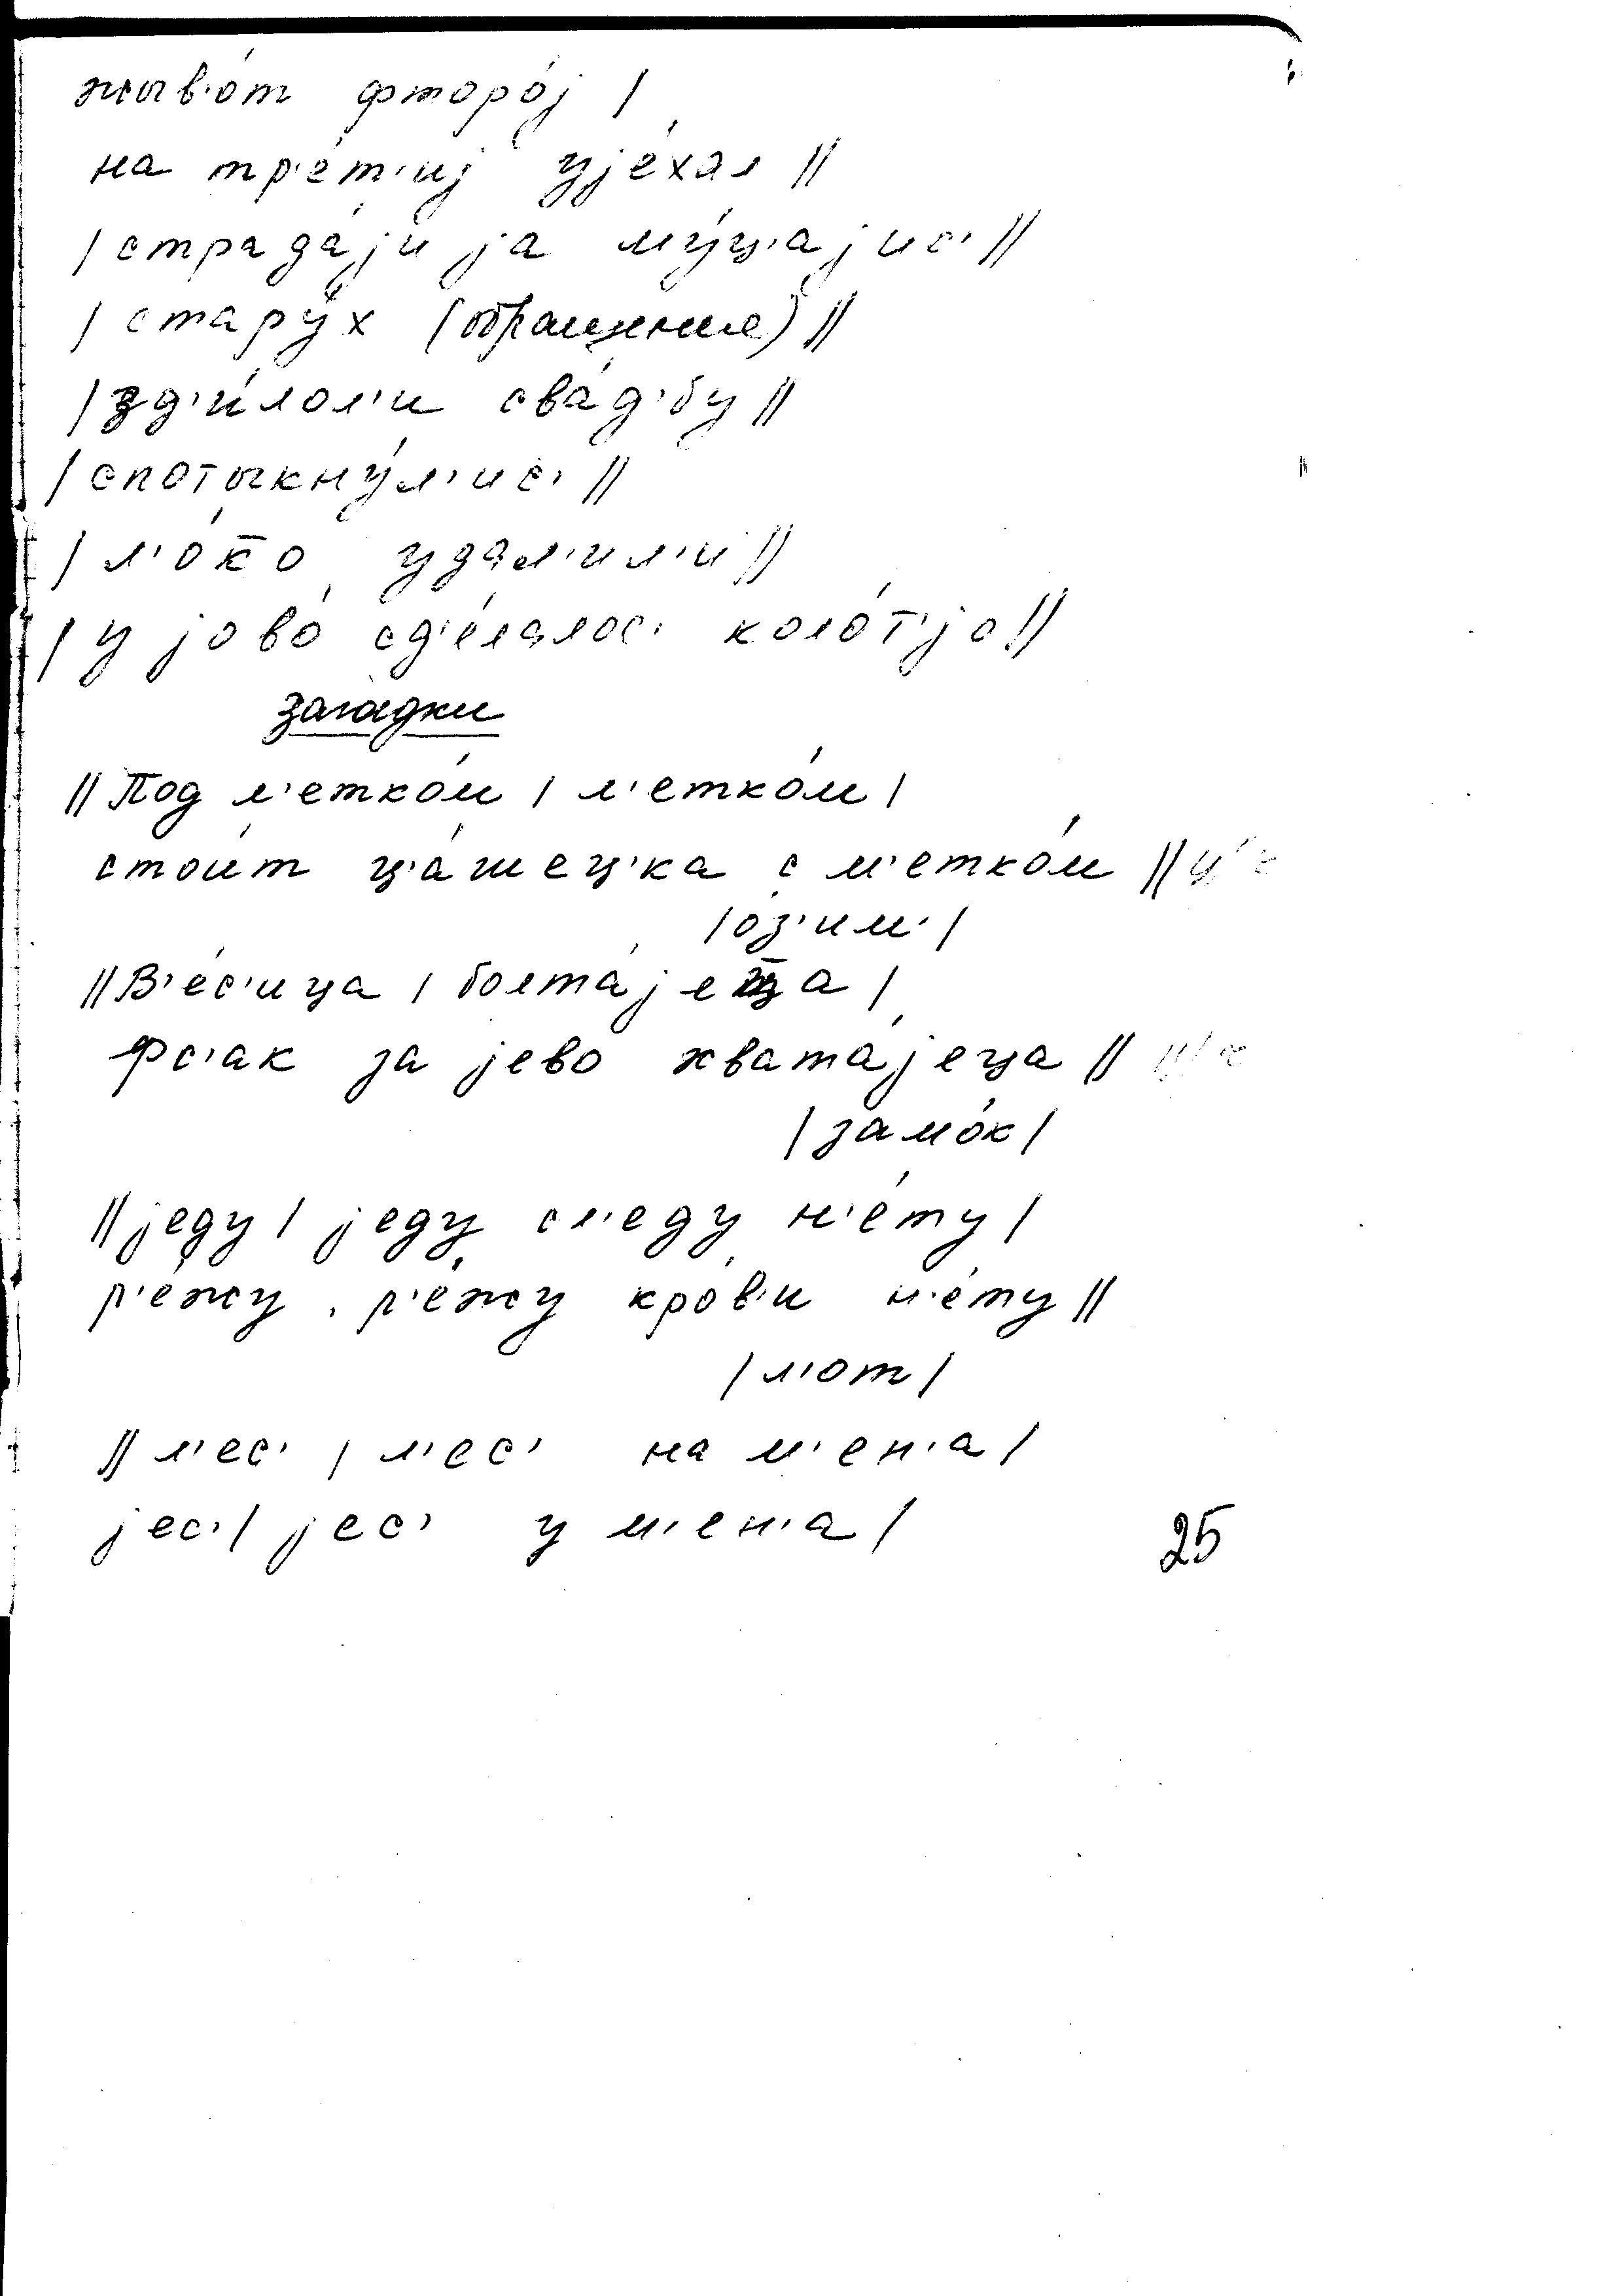 жыв'о́т фторо́j |
на тр'е́т'иj уjе́хал ||
| страда́jи jа му́ц'аjис' ||
| стару́х (обращение) ||
| зд'и́лол'и сва́д'бу ||
| спотыкну́л'ис' ||
| л'о́к̅о удал'ил'и́ ||
| у jово́ сд'е́лалос' коло́т'jо ||
загадки
|| Под л'етко́м | м'етко́м |
стои́т ц'а́шец'ка с м'етко́м ||
| о́з'им' |
|| В'е́с'ица | болта́jеца |
фс'ак за jево хвата́jеца ||
| замо́к |
|| jеду | jеду сл'еду н'е́ту |
р'е́жу, р'е́жу кро́в'и н'е́ту ||
| л'от |
|| л'ес' | л'ес' на м'ен'а |
jес' | jес' у м'ен'а |
25